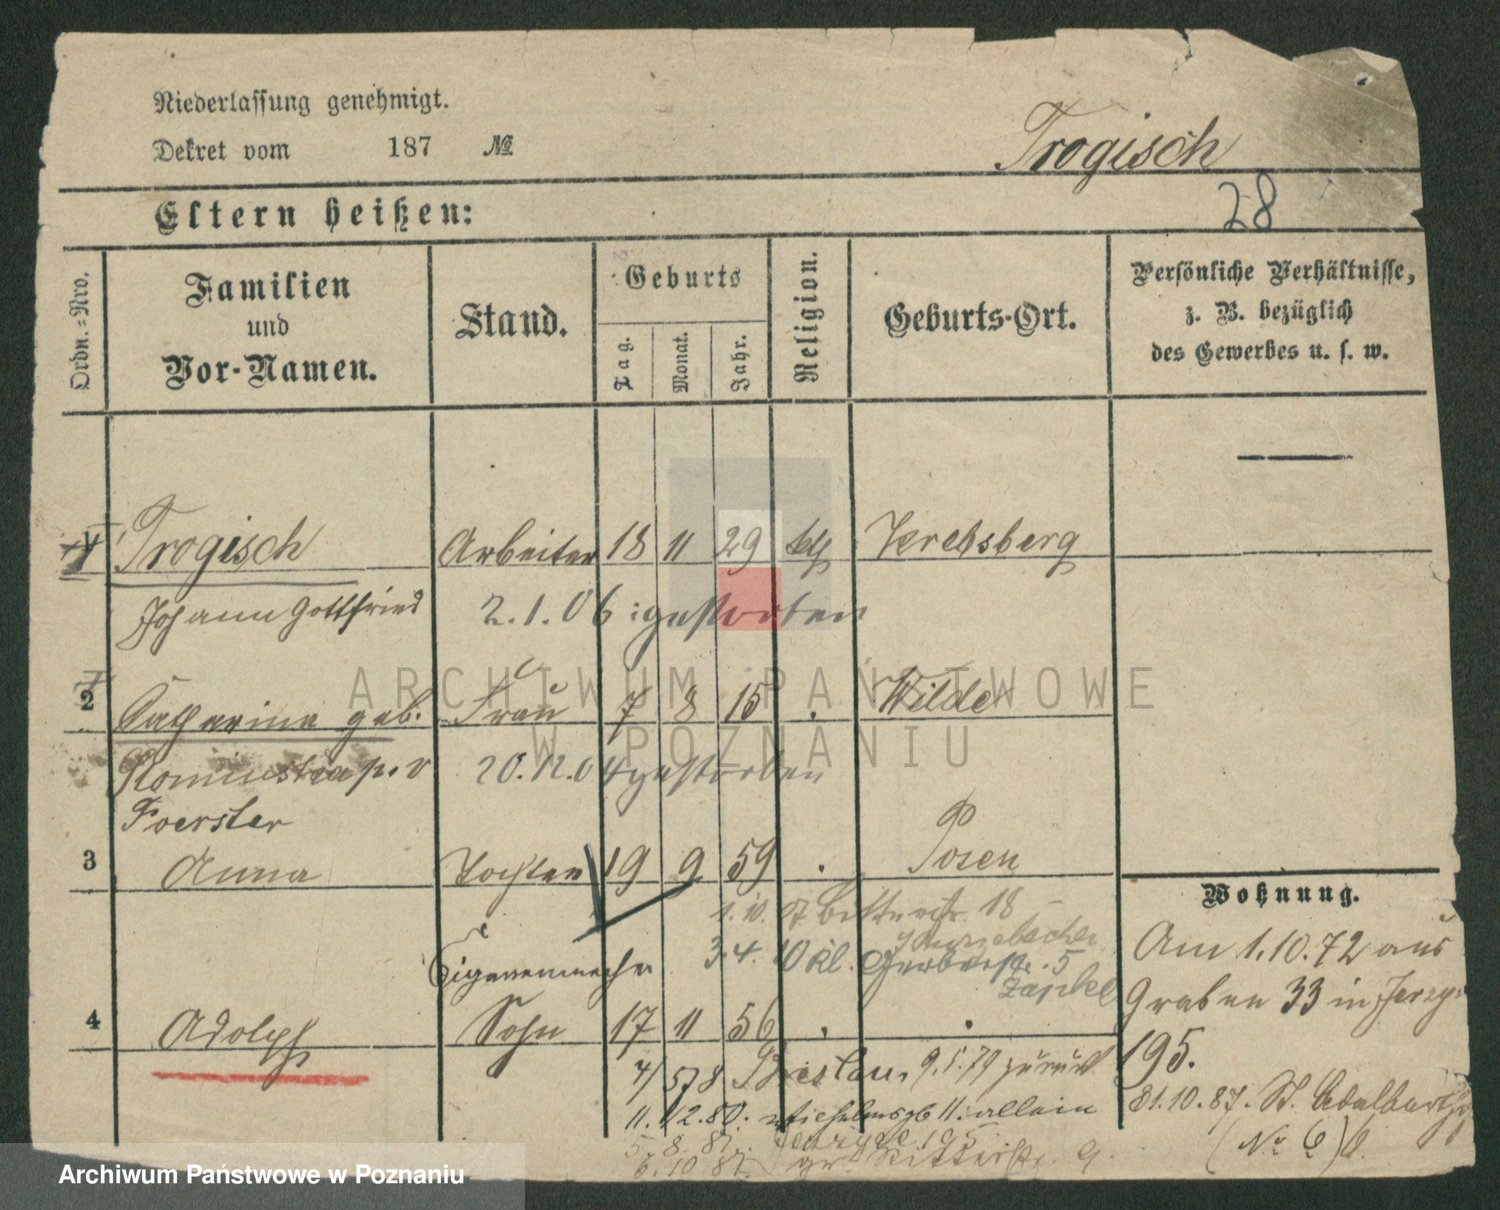 Niederlassung genehmigt.
Dekret vom 187 №
Trogisch
28
Eltern heißen:
Ordn.-Nro.
Familien
und
Vor-Namen.
Stand.
Geburts
Tag.
Monat.
Jahr.
Religion.
Geburts-Ort.
Persönliche Verhältnisse,
z. B. bezüglich
des Gewerbes u. s. w.
Trogisch Arbeiter 18 11 29 Krebsberg
Johann Gottfried 2.1.06 gestorben
2 Catharina geb. Frau 7 8 15 . Wilde
v 20.12.04 gestorben
Foerster
3 Anna Tochter 19 9 59 . Posen
Wohnung.
1.10.07 18
3.4.10 kl. Gerberstr. 5
Zapke
Am 1.10.72 aus
Graben 33 in
195.
4 Adolph Sohn 17 11 56 . .
Breslau, 9.1.79 zurück
11.12.80. 11. allein
31.10.87. St.
5.8.87. 195
(No 6)
6.10.87. gr. Ritterstr. 9.
ARCHIWUM PAŃSTWOWE
W POZNANIU
Archiwum Państwowe w Poznaniu